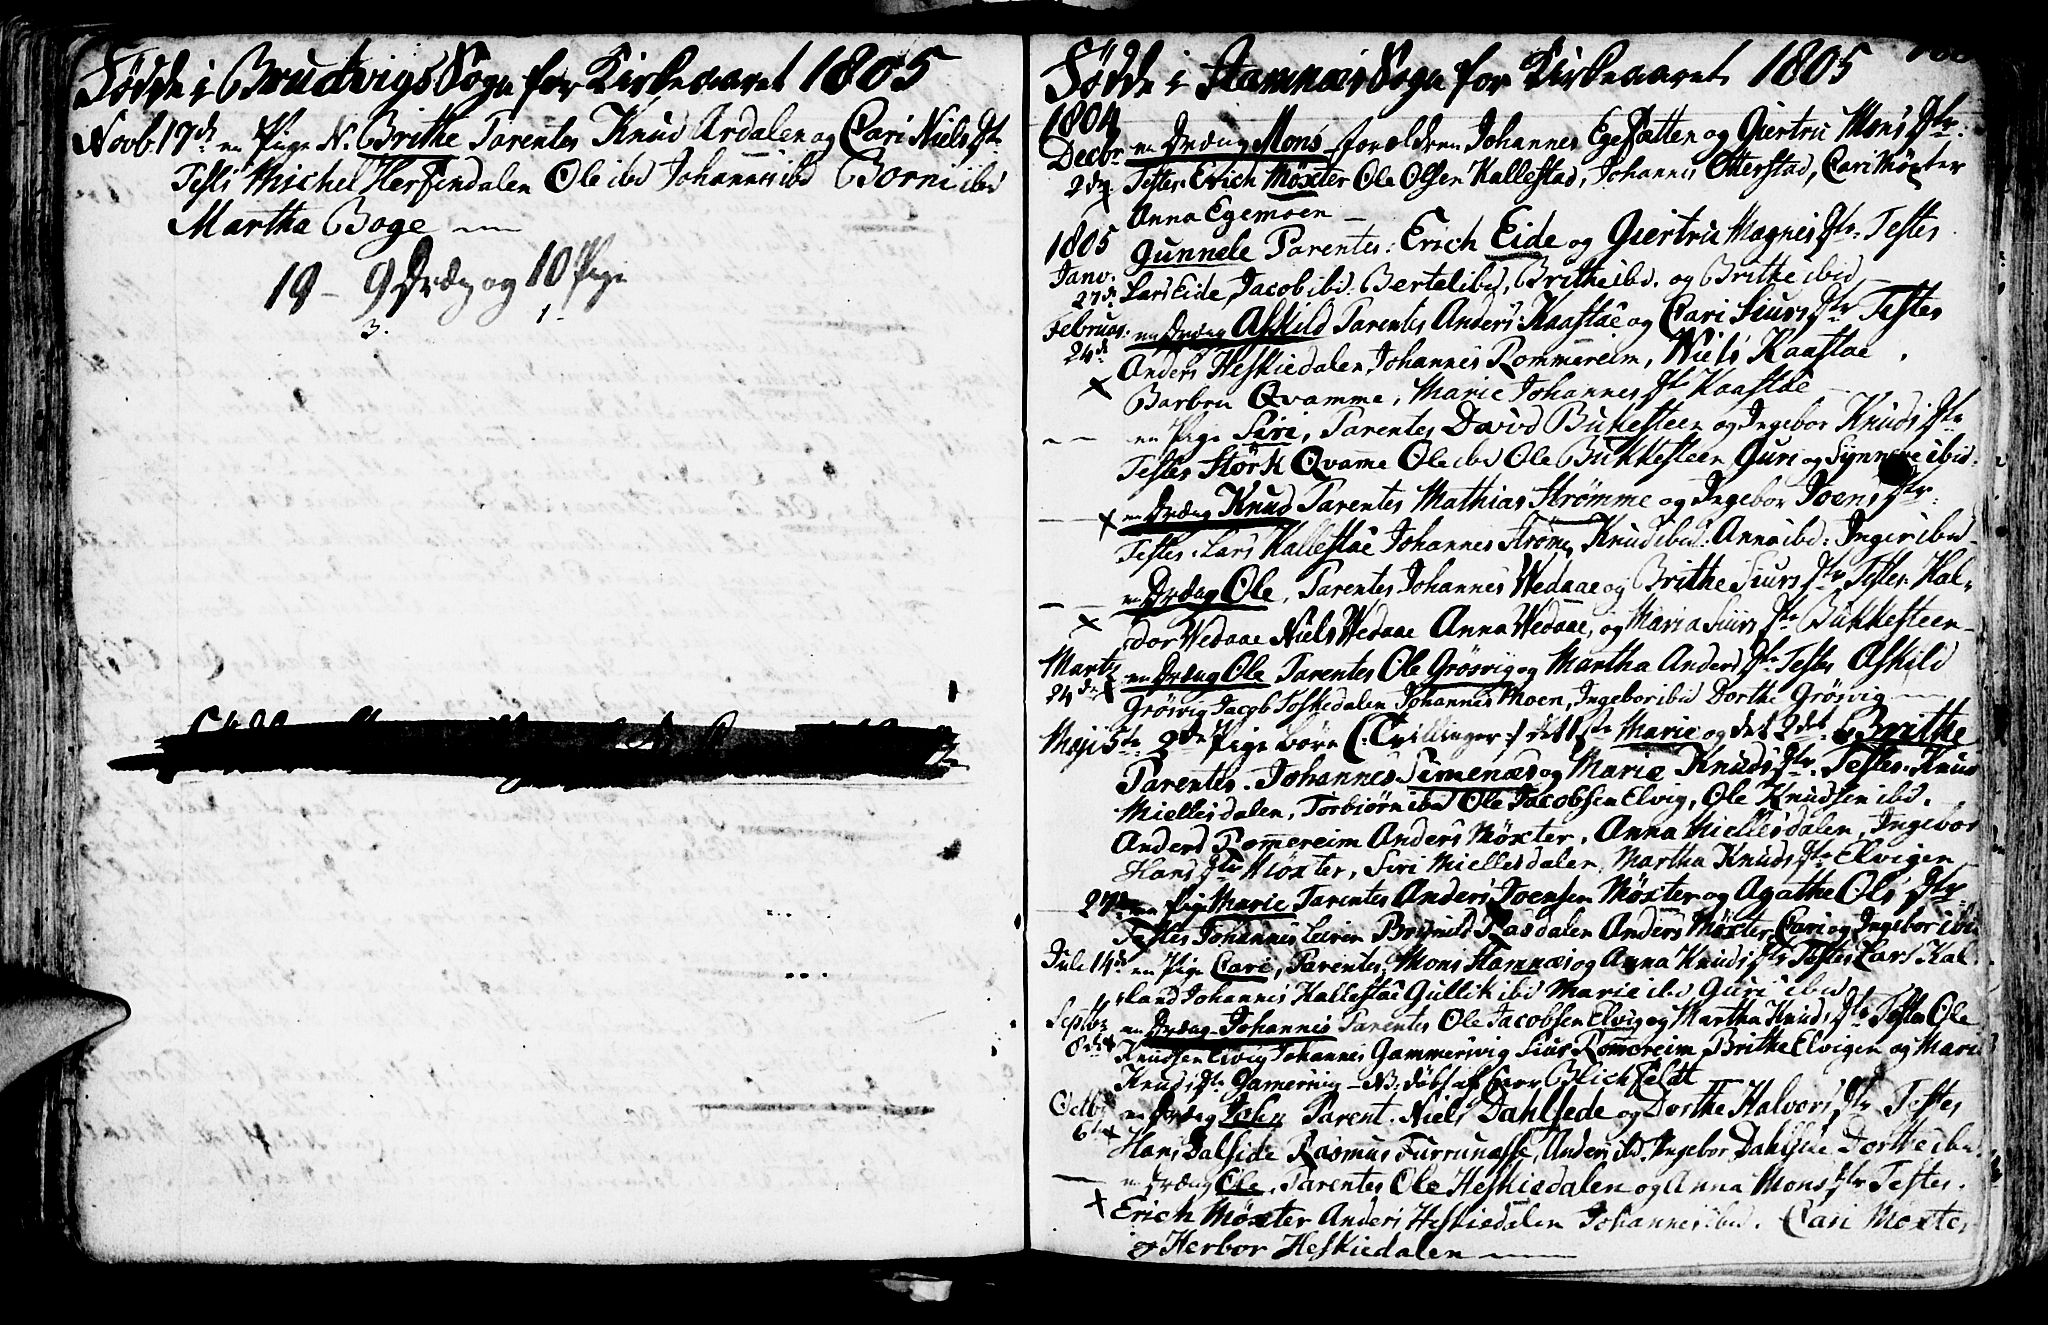 Födde i Brudvigs Sogn for Kirkeaaret 1805
Novb. 17de en Pige N. Brithe Parentes Knud Ardalen og Cari Niels Dtr
Testes Michel Herfindalen Ole ibd Johannes ibd Borni ibd
Martha Boge
19 - 9 Dræng og 10 Pige
3. 1
Födde i Stamnæs Sogn for Kirkeaaret 1805
1804
Decbr en Dræng Mons forældrene Johannes Egefætten og Giertru Mons Dtr.
2den Testes Erich Möxter Ole Olsen Kallestad, Johannes Otterstad, Cari Möxter
Anna Egemoen
1805 Gunnele Parentes: Erich Eide og Giertru Magnes Dtr: Testes
Janv. 27de Lars Eide, Jacob ibd. Bertel ibd, Brithe ibd. og Brithe ibid
Februar. en Dræng Askild Parentes Anders Kaastae og Cari Siurs Dtr Testes
24de Anders Heskiedalen, Johannes Rommereim, Niels Kaastae
x Barbru Qvamme, Marie Johannes Dtr Kaastae
- - en Pige Siri, Parentes David Bukesteen og Ingebor Knuds Dtr
Testes Störk Qvame Ole ibd Ole Bukkesteen, Guri og Synneve ibid.
- x en Dræng Knud Parentes Mathias Strömme og Ingebor Joens Dtr.
Testes. Lars Kallestae Johannes Ströme, Knud ibid: Anna ibd: Inger ibid
- - en Dræng Ole, Parentes Johannes Wedaae og Brithe Siurs Dtr Testes. Hal-
x dor Wedaae Niels Wedaae Anna Wedaae, og Maria Siurs Dtr Bukkesteen
Marty en Dræng Ole Parentes Ole Grösvig og Martha Anders Dtr Testes Askild
24de x Grösvig Jacob Toskedalen Johannes Moen, Ingebor ibid Dorthe Grösvig
Maji 5te 2de Pige börn (: Tvillinger :) det 1ste Marie og det 2det Brithe
Parentes. Johannes Simenæs og Marie Knuds Dtr. Testes. Knud
Miellesdalen, Torbiörn ibd Ole Jacobsen Elvig, Ole Knudsen ibd.
Anders Romereim Anders Möxter, Anna Miellesdalen, Ingebor
Hans Dtr Möxter, Siri Miellesdalen Martha Knuds Dtr Elvigen
27de en Pige Marie Parentes Anders Joensen Möxter og Agatha Ols Dtr
Testes Johannes Leiren Brynild Rasdalen Anders Möxter Cari og Ingebor ibid
Juli 14de en Pige Cari, Parentes, Mons Stamnæs og Anna Knuds Dtr Testes Lars Kal-
land Johannes Kallestae Gullik ibid Marie ibd Guri ibid
Septbr en Dræng Johannes Parentes Ole Jacobsen Elvig og Martha Knuds Dtr Testes Ole
8de x Knudsen Elvig Johannes Gammersvig Siur Romereim, Brithe Elvigen og Marie
Knuds Dtr Gamersvig - NB: döbt af Herr Blichfeldt
Octbr en Dræng John Parent. Niels Dahlsede og Dorthe Halvors Dtr Testes
6te x Hans Dalside Rasmus Furrunasse, Anders ibd. Ingebor Dahlside Dorthe ibd.
- en Dræng Ole, Parentes Ole Heskiedalen og Anna Mons Dtr Testes.
x Erich Möxter Anders Heskiedalen Johannes ibd. Cari Moxter
og Herbor Heskiedalen